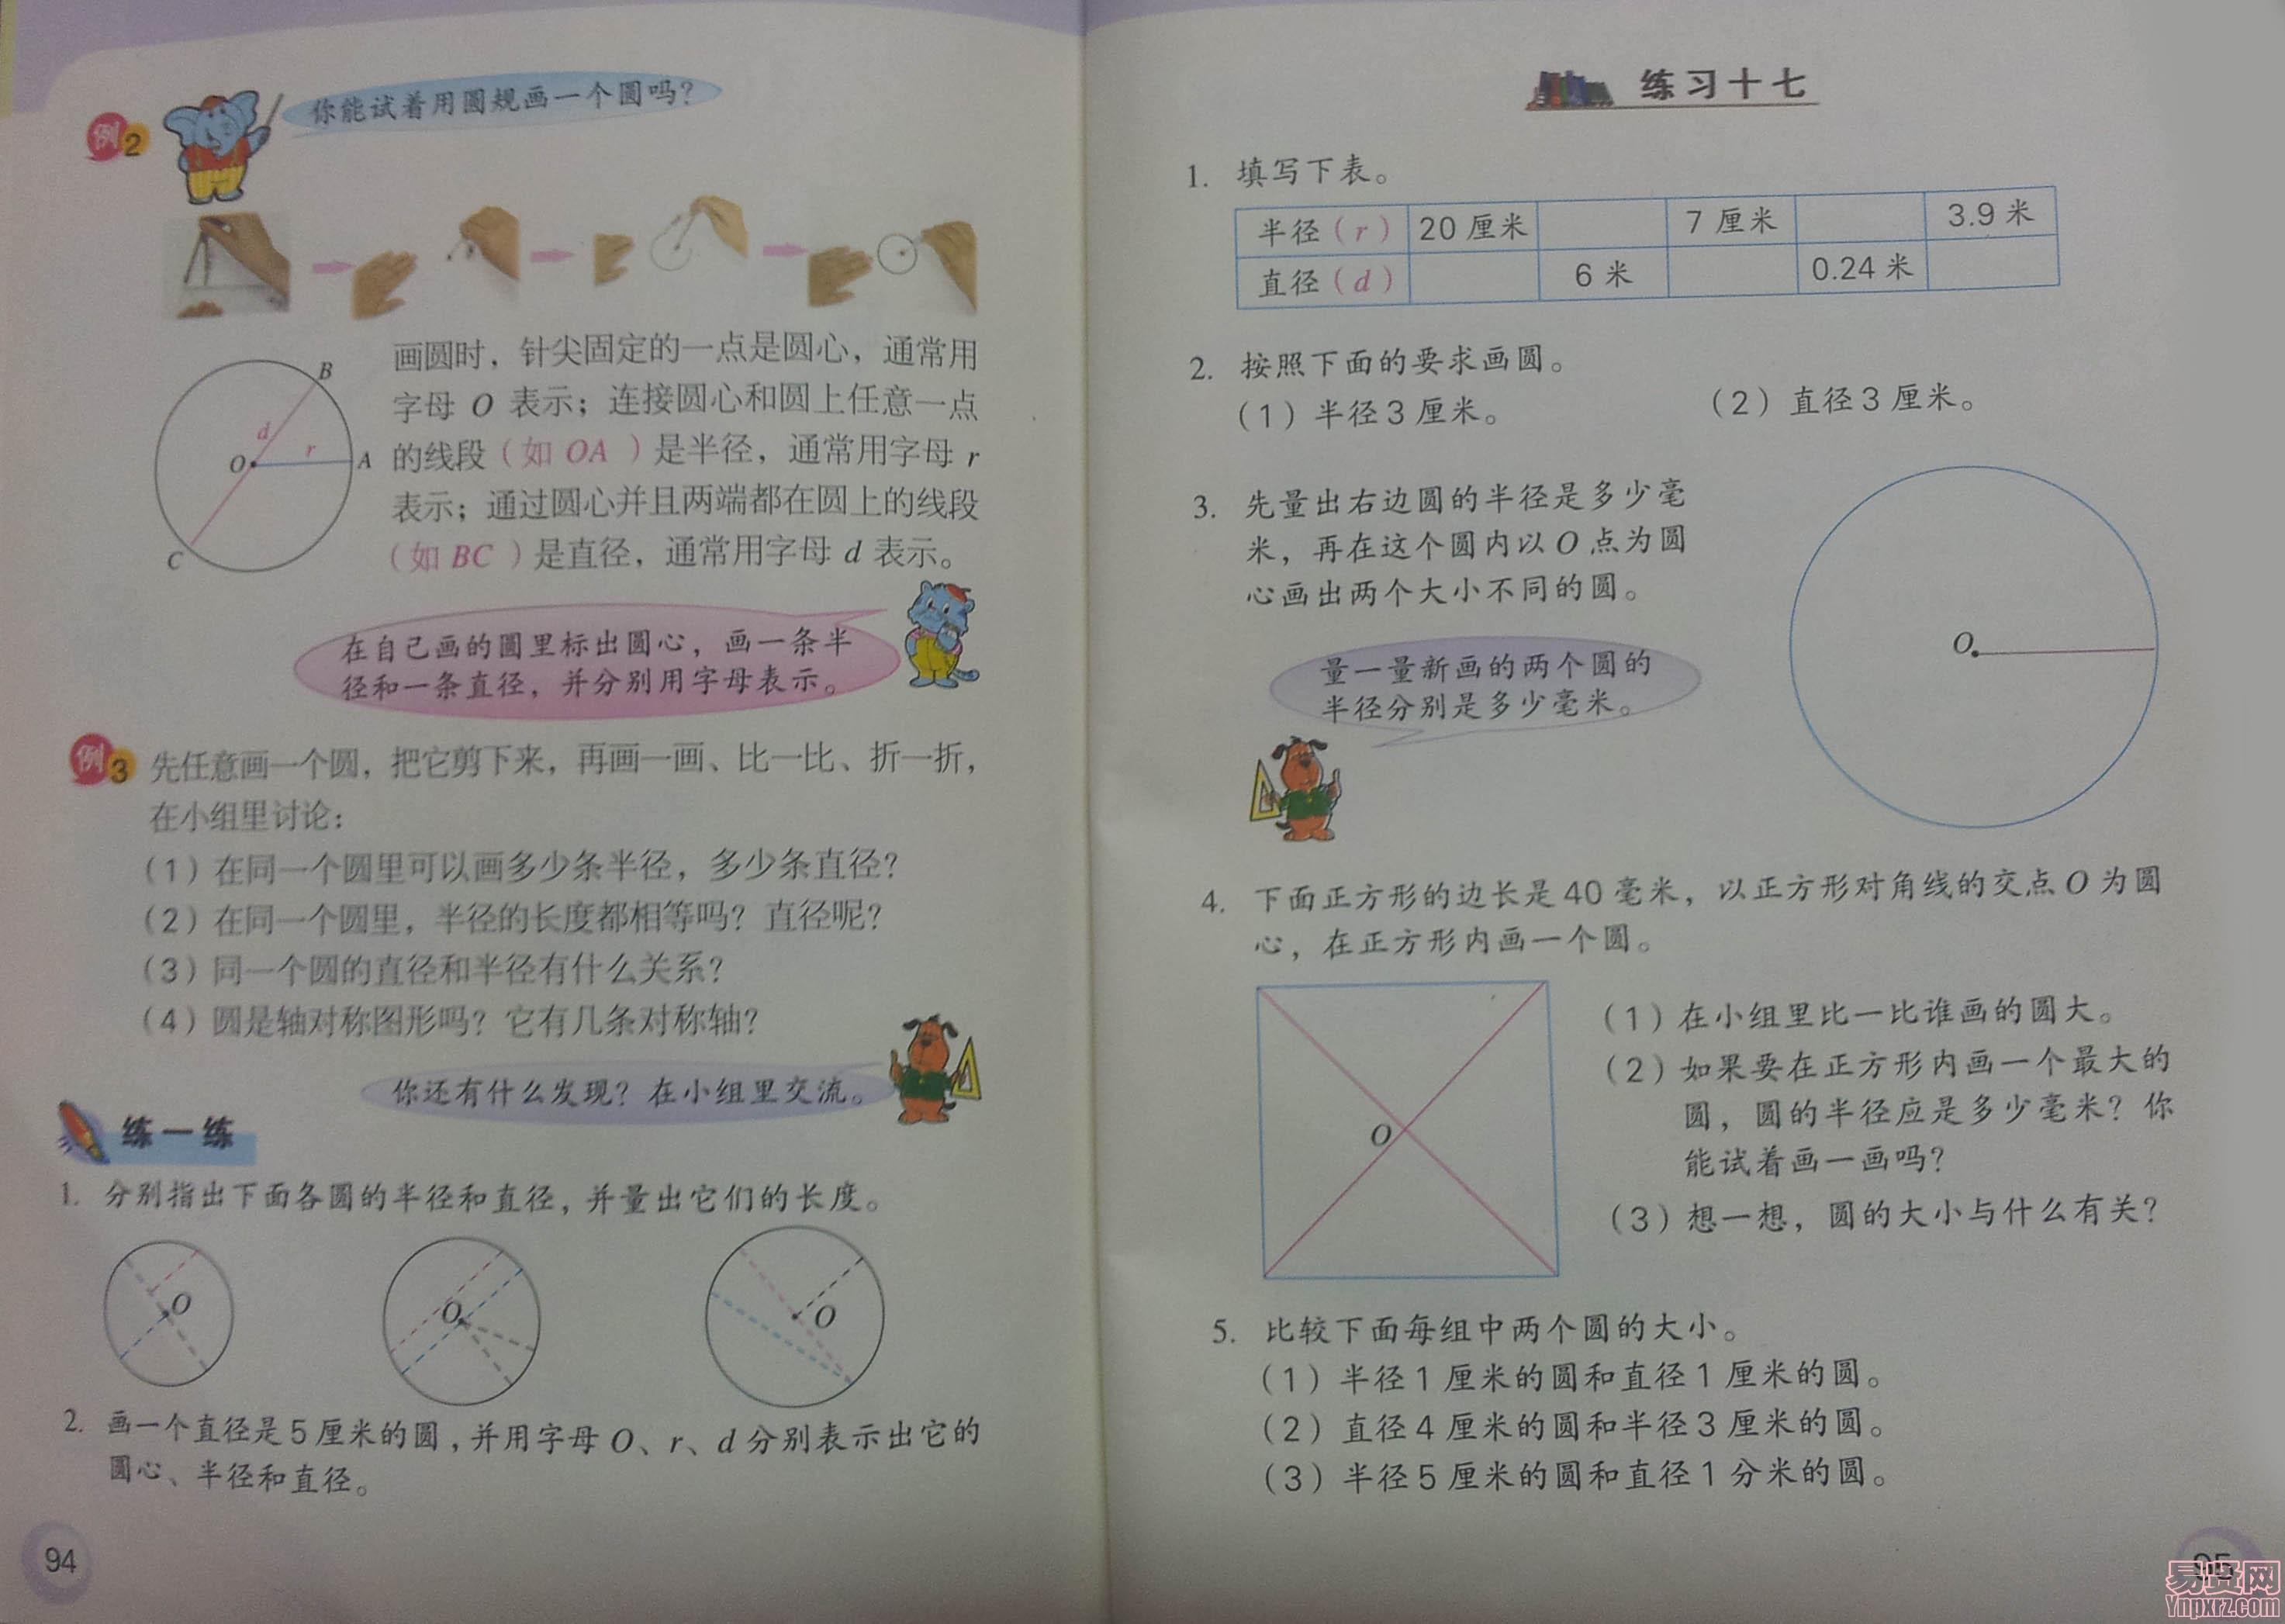 例2
你能试着用圆规画一个圆吗？
B
d
r
O
A
C
画圆时，针尖固定的一点是圆心，通常用
字母 O 表示；连接圆心和圆上任意一点
的线段（如 OA ）是半径，通常用字母 r
表示；通过圆心并且两端都在圆上的线段
（如 BC ）是直径，通常用字母 d 表示。
在自己画的圆里标出圆心，画一条半
径和一条直径，并分别用字母表示。
例3 先任意画一个圆，把它剪下来，再画一画、比一比、折一折，
在小组里讨论：
（1）在同一个圆里可以画多少条半径，多少条直径？
（2）在同一个圆里，半径的长度都相等吗？直径呢？
（3）同一个圆的直径和半径有什么关系？
（4）圆是轴对称图形吗？它有几条对称轴？
你还有什么发现？在小组里交流。
练一练
1. 分别指出下面各圆的半径和直径，并量出它们的长度。
O O O
2. 画一个直径是5厘米的圆，并用字母 O、r、d 分别表示出它的
圆心、半径和直径。
94
练习十七
1. 填写下表。
半径（r） 20 厘米 7 厘米 3.9 米
直径（d） 6 米 0.24 米
2. 按照下面的要求画圆。
（1）半径3厘米。 （2）直径3厘米。
3. 先量出右边圆的半径是多少毫
米，再在这个圆内以 O 点为圆
心画出两个大小不同的圆。
O
量一量新画的两个圆的
半径分别是多少毫米。
4. 下面正方形的边长是40毫米，以正方形对角线的交点 O 为圆
心，在正方形内画一个圆。
O
（1）在小组里比一比谁画的圆大。
（2）如果要在正方形内画一个最大的
圆，圆的半径应是多少毫米？你
能试着画一画吗？
（3）想一想，圆的大小与什么有关？
5. 比较下面每组中两个圆的大小。
（1）半径1厘米的圆和直径1厘米的圆。
（2）直径4厘米的圆和半径3厘米的圆。
（3）半径5厘米的圆和直径1分米的圆。
95
易贤网
Ynpxrz.com